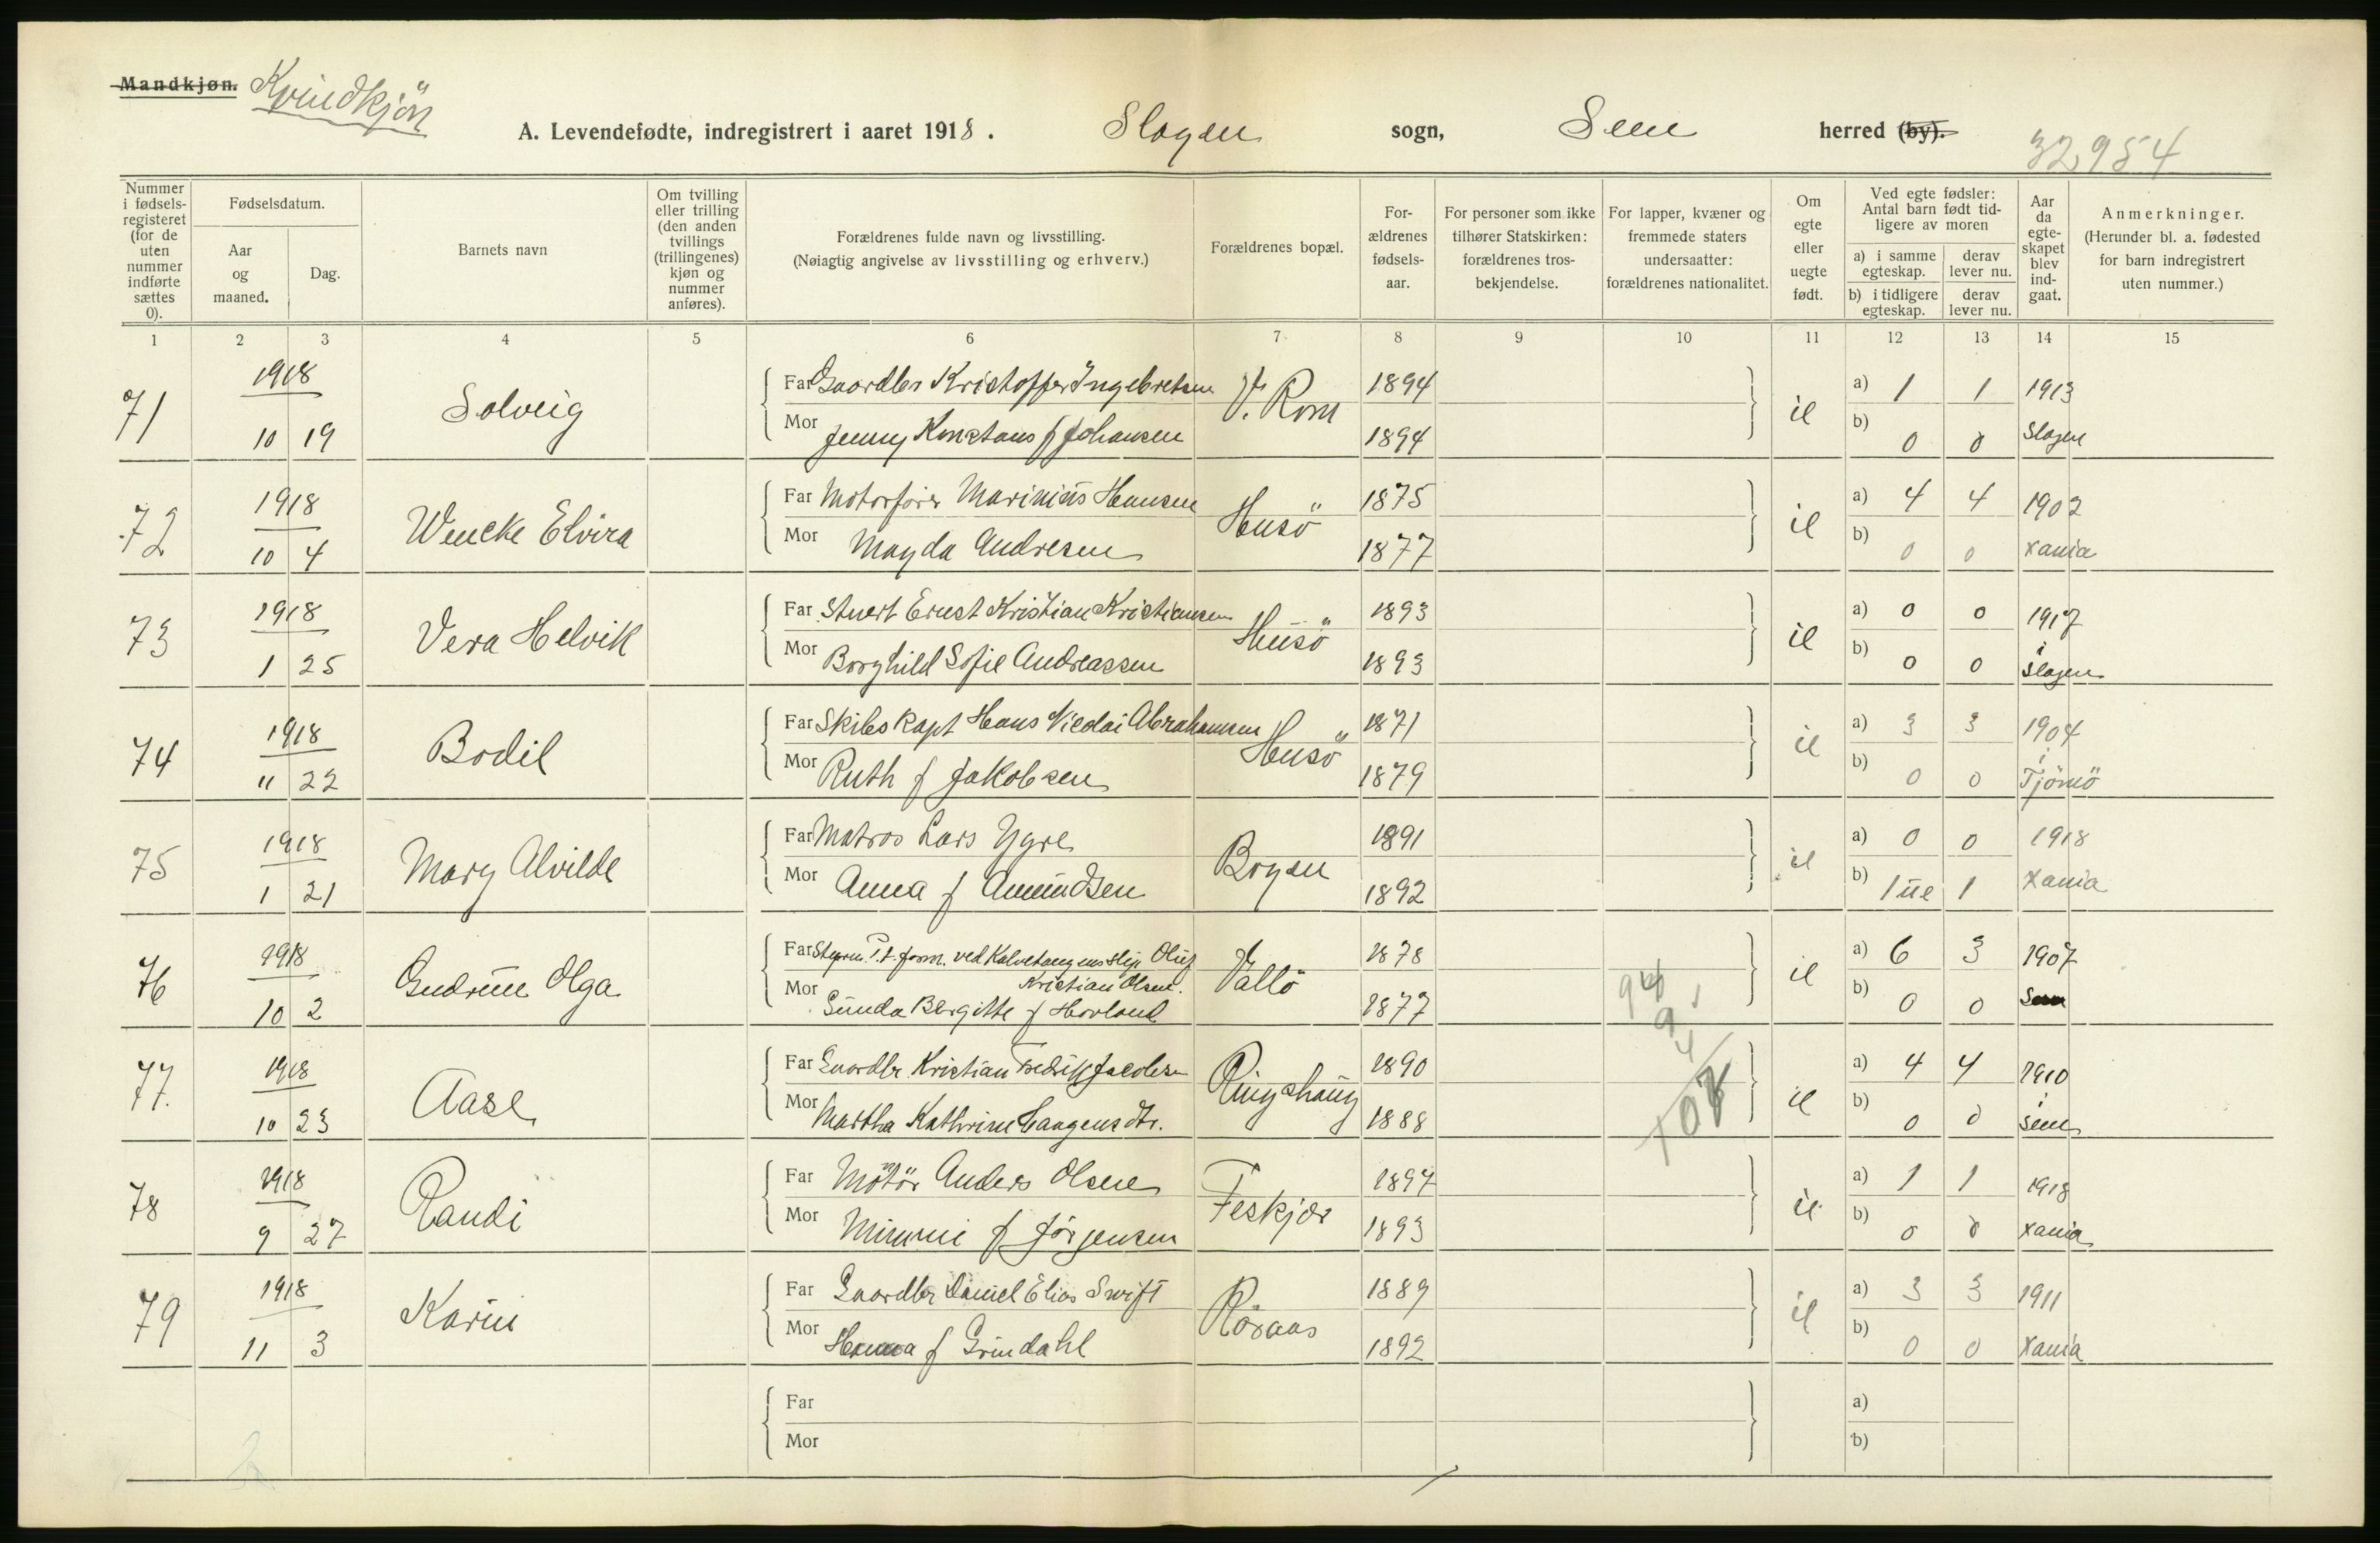 Mandkjøn. Kvindkjön
A. Levendefødte, indregistrert i aaret 1918. Slagen sogn, Sem herred (by).
32954
Nummer i fødselsregisteret (for de uten nummer indførte sættes 0).
Fødselsdatum.
Aar og maaned.
Dag.
Barnets navn
Om tvilling eller trilling (den anden tvillings (trillingenes) kjøn og nummer anføres).
Forældrenes fulde navn og livsstilling.
(Nøiagtig angivelse av livsstilling og erhverv.)
Forældrenes bopæl.
Forældrenes fødselsaar.
For personer som ikke tilhører Statskirken: forældrenes trosbekjendelse.
For lapper, kvæner og fremmede staters undersaatter: forældrenes nationalitet.
Om egte eller uegte født.
Ved egte fødsler: Antal barn født tidligere av moren
a) i samme egteskap.
derav lever nu.
b) i tidligere egteskap.
derav lever nu.
Aar da egteskapet blev indgaat.
Anmerkninger.
(Herunder bl. a. fødested for barn indregistrert uten nummer.)
1 2 3 4 5 6 7 8 9 10 11 12 13 14 15
71 1918 Solveig Far Gaardbr Kristoffer Ingebretsen V. Rom 1894 a) 1 1 1913
10 19 Mor Jenny Konstans f Johansen 1894 b) 0 0 Slagen
72 1918 Wencke Elvira Far Motorfører Marinius Hansen Husö 1875 a) 4 4 1902
10 4 Mor Magda Andresen 1877 b) 0 0 Xania
73 1918 Vera Helvik Far Stuert Ernst Kristian Kristiansen Husö 1893 a) 0 0 1917
1 25 Mor Borghild Sofie Andreassen 1893 b) 0 0 i Slagen
74 1918 Bodil Far Skibskapt Hans Nicolai Abrahamsen Husö 1871 a) 3 3 1904
11 22 Mor Ruth f Jakobsen 1879 b) 0 0 i Tjömö
75 1918 Mary Alvilde Far Matros Lars Ygre Bogen 1891 a) 0 0 1918
1 21 Mor Anna f Amundsen 1892 b) 1 ue 1 Xania
76 1918 Gudrun Olga Far Styrm. P.t. form. ved Kalvetangens slip Oluf Kristian Olsen. Vallö 1878 a) 6 3 1907
10 2 Mor Gunda Bergitte f Horland 1877 b) 0 0 Sem
77. 1918 Aase Far Gaardbr Kristian Fredrik Jacobsen Ringshaug 1890 a) 4 4 1910
10 23 Mor Martha Kathrine Haagensdtr. 1888 b) 0 0 i Sem
78 1918 Randi Far Motör Anders Olsen Feskjær 1894 a) 1 1 1918
9 27 Mor Mimmi f Jörgensen 1893 b) 0 0 Xania
79 1918 Karin Far Gaardbr Daniel Elias Swift Röraas 1889 a) 3 3 1911
11 3 Mor Hanna f Grindahl 1892 b) 0 0 Xania
Far a)
Mor b)